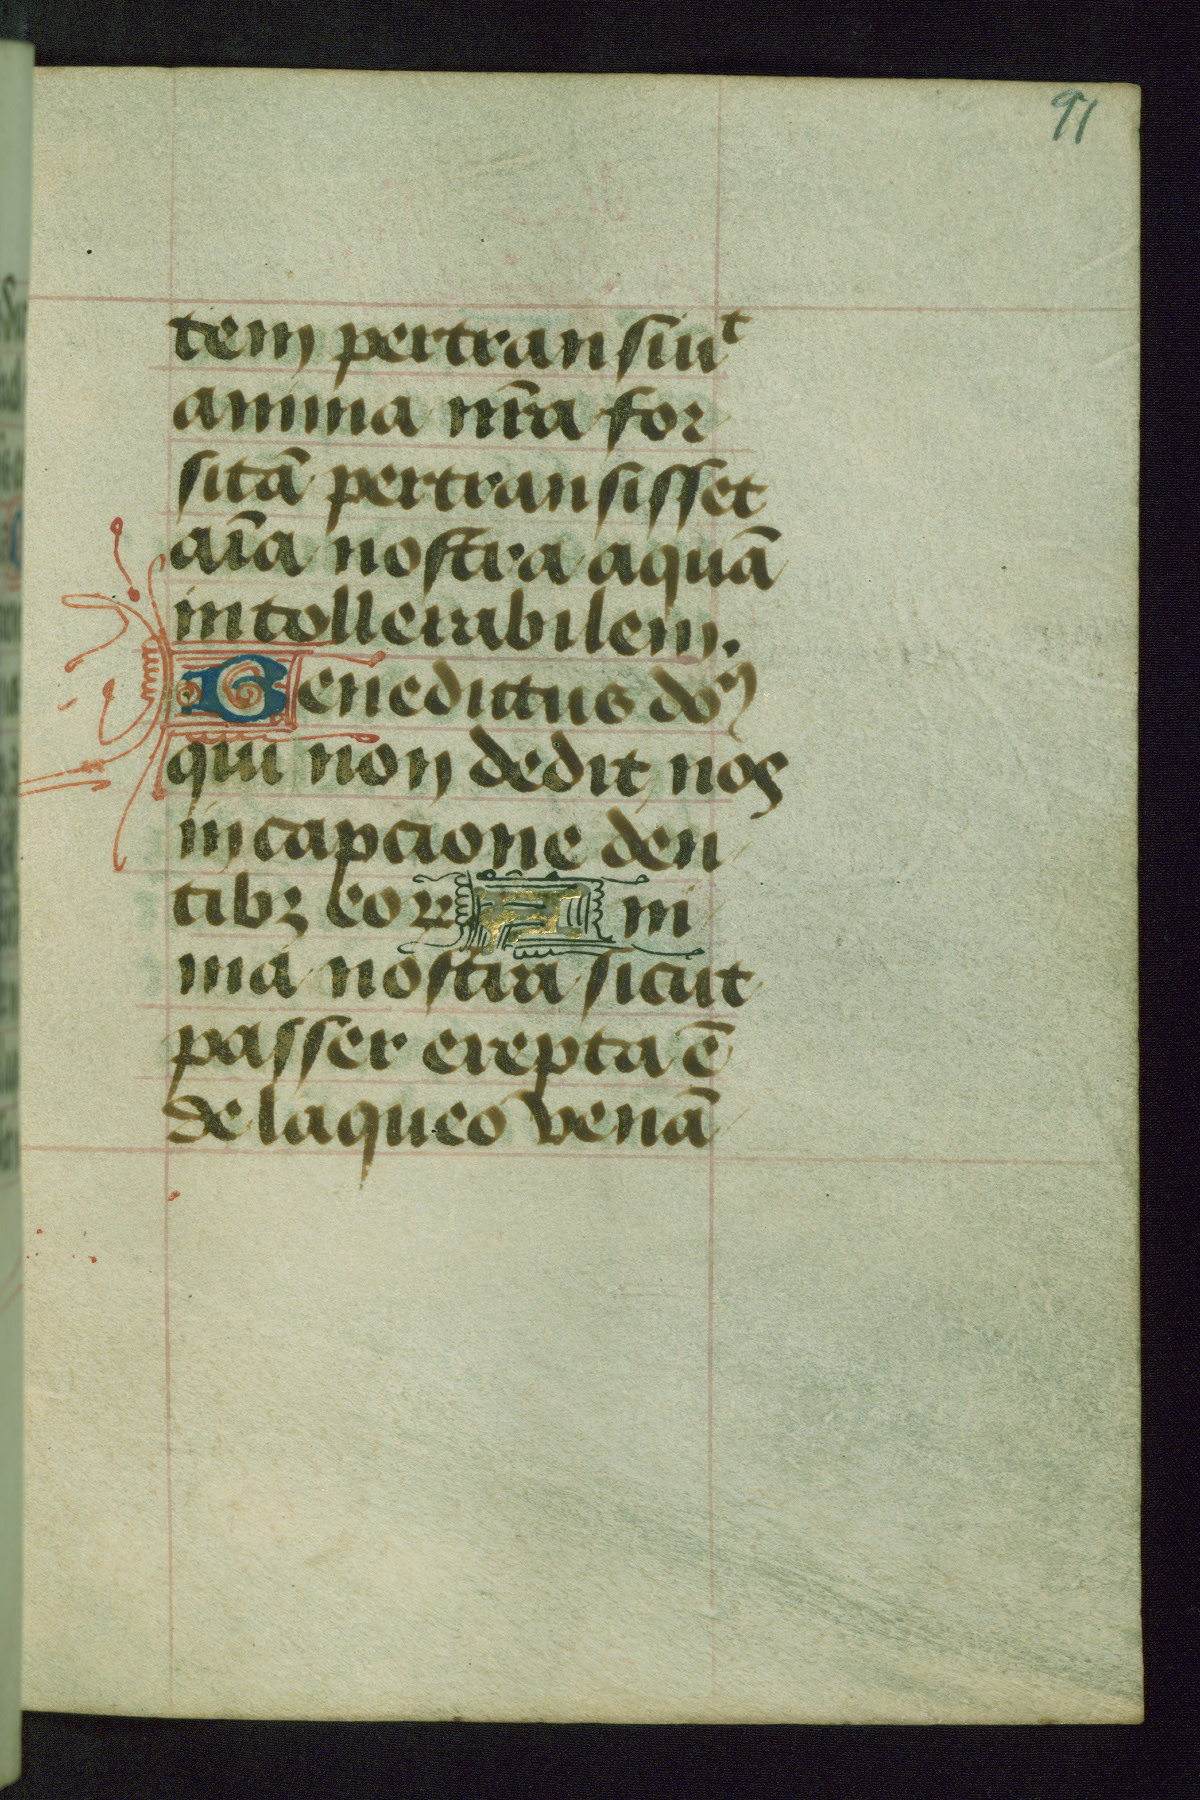 91
tem pertransiuᵗ
anima nr̄a for
sitā pertransisset
aīa nostra aquā
intollerabilem.
Benedictus dōs
qui non dedit nos
in capcione den
tibꝫ eoꝝ Ani
ma nostra sicut
passer erepta ē
de laqueo venā